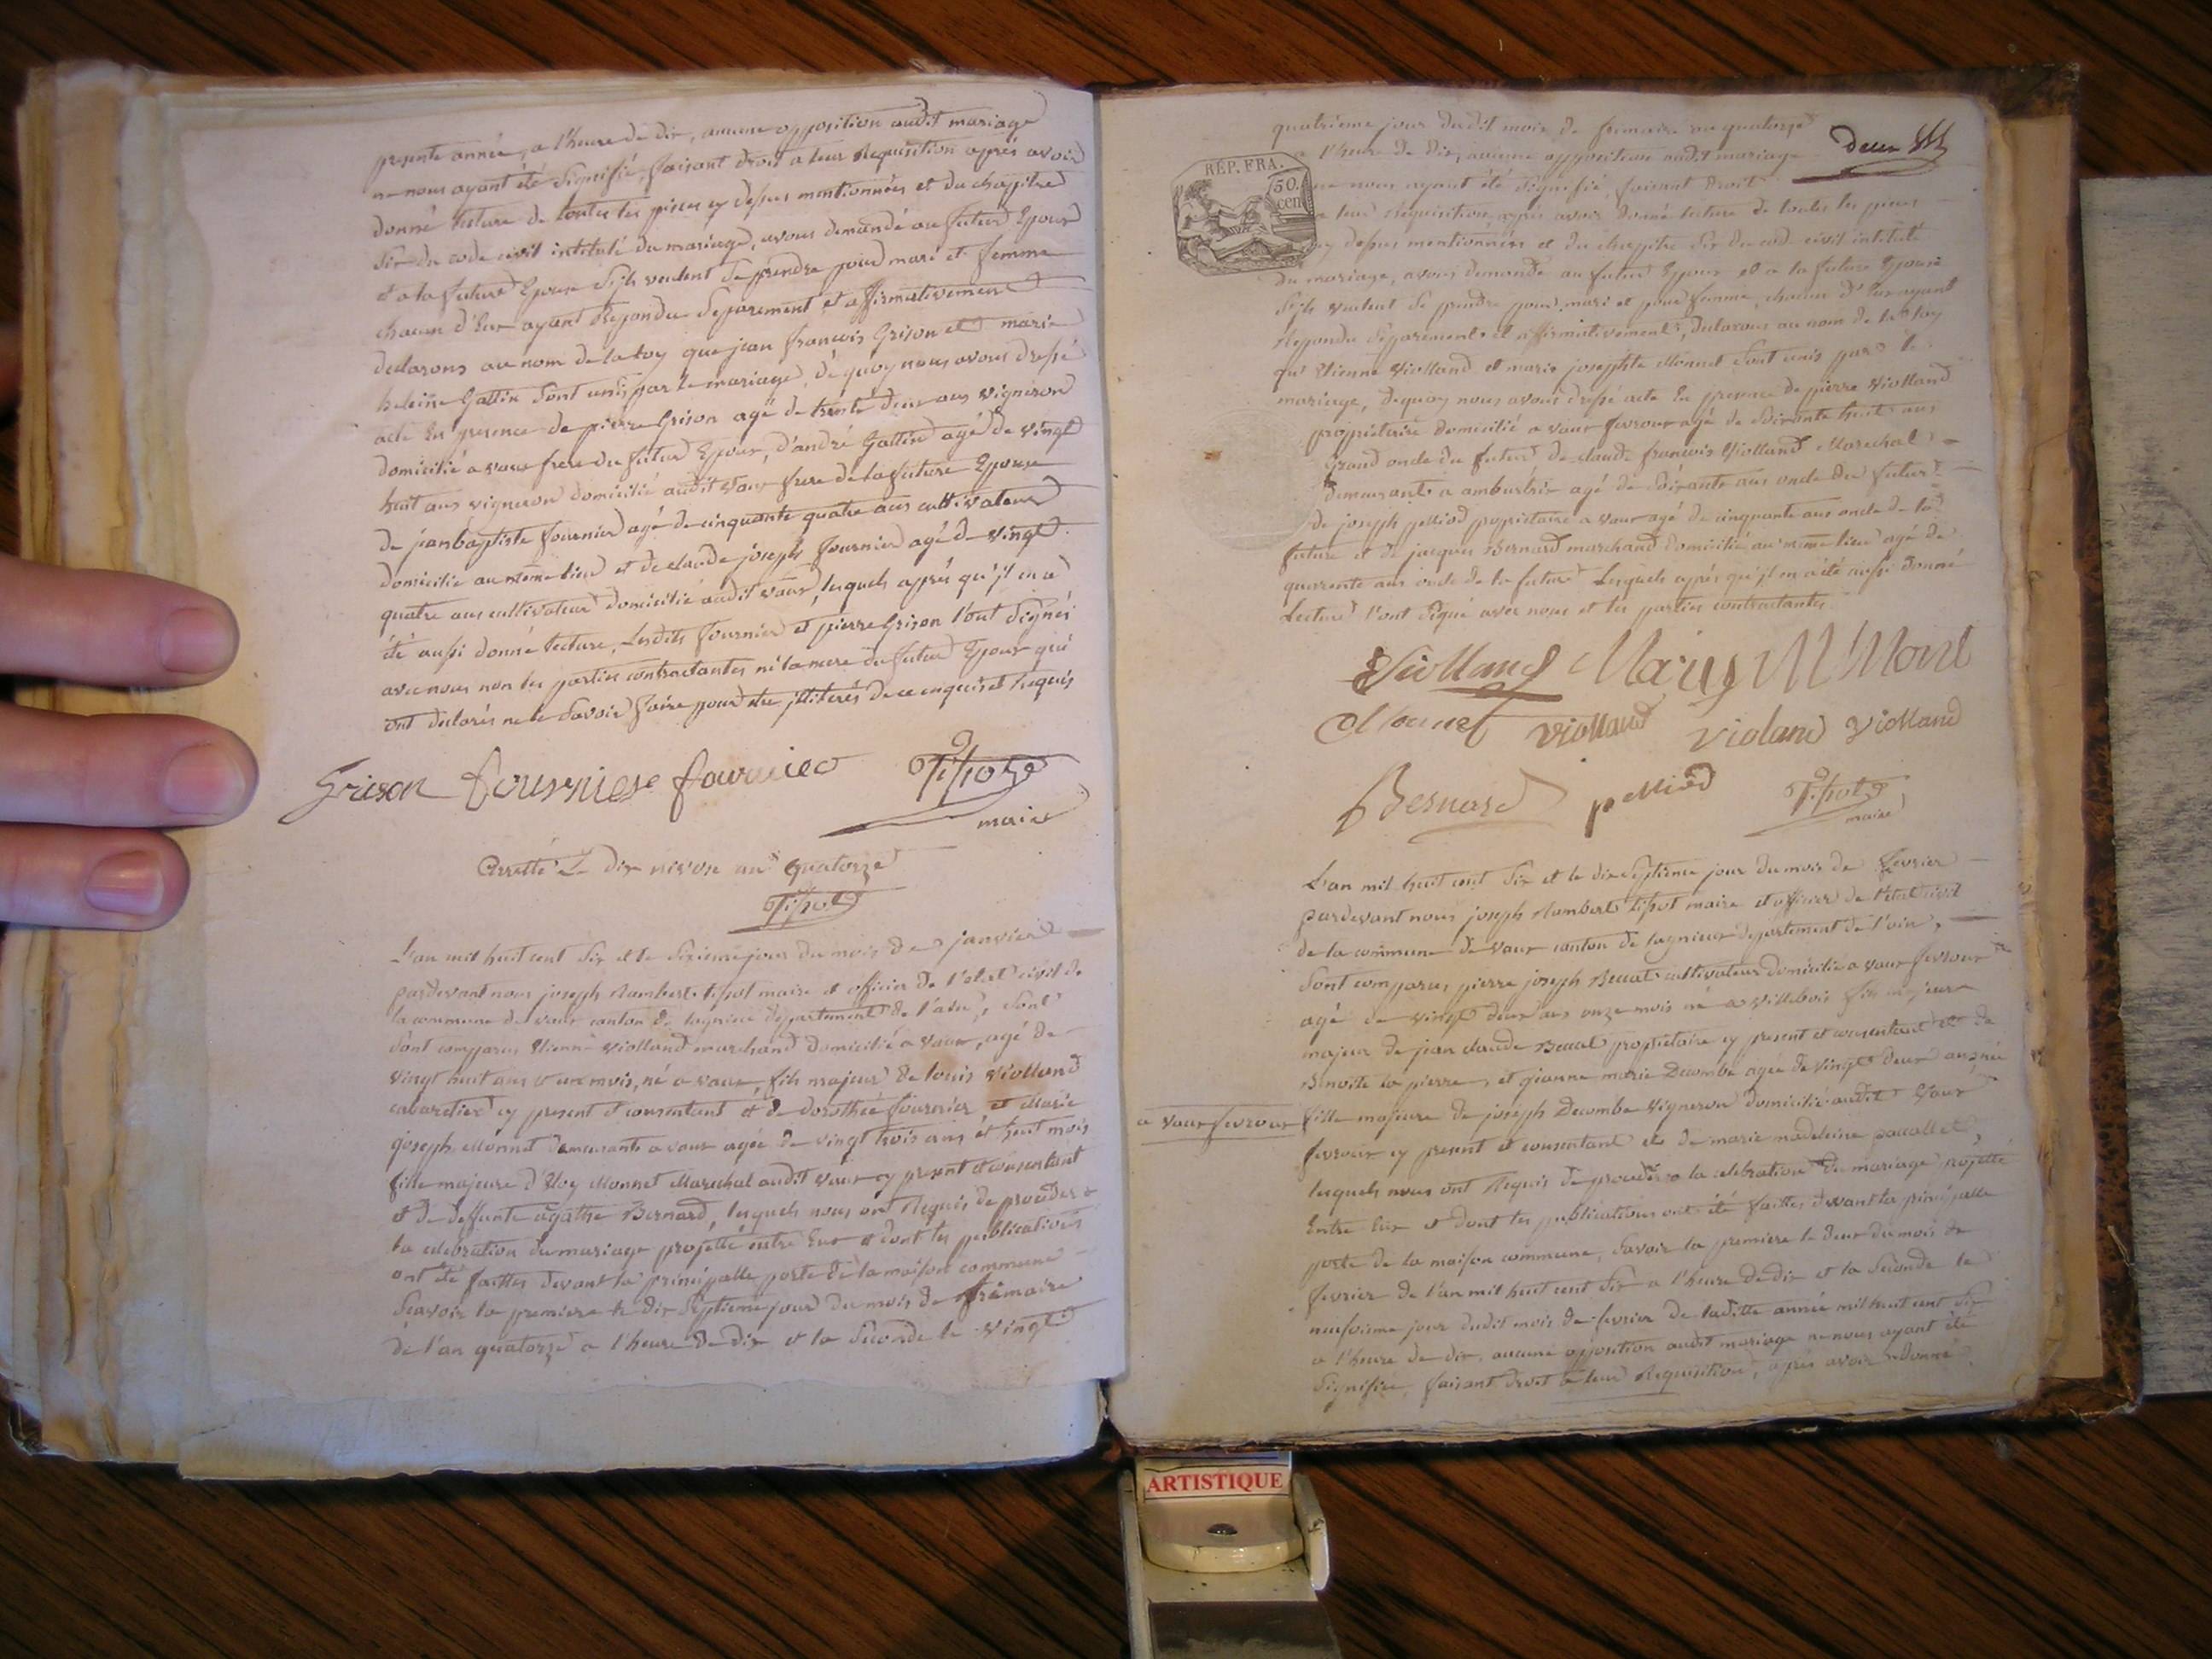 presente année, a l'heure de dix, aucune opposition audit mariage
ne nous ayant été signifié, faisant droit a leur Requisition après avoir
donné lecture de toutes les pieces cy dessus mentionnées et du chapitre
six du code civil intitulé du mariage, avons demandé au futur Epoux
et a la future Epouse s'ils veulent se prendre pour mari et femme
chacun d'Eux ayant Repondu separement et affirmativement
declarons au nom de la loy que jean francois Grison et marie
heleine Gattin sont unis par le mariage, de quoy nous avons dressé
acte En presence de pierre Grison agé de trente deux ans vigneron
domicilié a vaux frere du futur Epoux, d'andré Gattin agé de vingt
huit ans vigneron domicilié audit vaux frere de la future Epouse
de jean baptiste fournier agé de cinquante quatre ans cultivateur
domicilié au même lieu et de claude joseph fournier agé de vingt
quatre ans cultivateur domicilié audit vaux, lesquels après qu'jl en a
été aussi donné lecture, Lesdits fournier et pierre Grison l'ont signés
avec nous non les parties contractantes ni la mere du futur Epoux qui
ont declarés ne le savoir faire pour etre jllitérés de ce enquis et Requis
Grison fournier fournier Tipot
maire
Arretté Le dix nivose an quatorze
Tipot
L'an mil huit cent six et le sixieme jour du mois de janvier
pardevant nous joseph Rambert tipot maire et officier de l'etat civil de
la commune de vaux canton de lagnieu departement de l'ain, sont
sont comparus Etienne Violland marchand domicilié a vaux, agé de
vingt huit ans et un mois, né a vaux, fils majeur de louis Violland
cabaretier cy present et consentant et de dorothée fournier, et Marie
joseph Monnet demeurante a vaux agée de vingt trois ans et huit mois
fille majeure d'Eloy Monnet Marechal audit vaux cy present et consentant
et de deffunte agathe Bernard, lesquels nous ont Requis de proceder a
la celebration du mariage projetté entre Eux et dont les publications
ont été faittes devant la principalle porte de la maison commune
Sçavoir la premiere le dix septieme jour du mois de frimaire
de l'an quatorze a l'heure de dix et la seconde le vingt
quatrieme jour dudit mois de frimaire an quatorze
deux
REP. FRA.
50. cen
a l'heure de dix, aucune opposition audit mariage
ne nous ayant été signifié, faisant droit
a leur Requisition, après avoir donné lecture de toutes les pieces
cy dessus mentionnées et du chapitre six du code civil intitulé
du mariage, avons demandé au futur Epoux et a la future Epouse
s'ils veulent se prendre pour mari et pour femme, chacun d'Eux ayant
Repondu separement et affirmativement, declarons au nom de la loy
que Etienne Violland et marie josephte Monnet sont unis par le
mariage, dequoy nous avons dressé acte En presence de pierre Violland
propriétaire domicilié a vaux fevroux agé de soixante huit ans
grand oncle du futur de claude francois Violland Marechal
demeurant a ambutrix agé de soixante ans oncle du futur
de joseph pelliod propriétaire a vaux agé de cinquante ans oncle de la
future et de jacques Bernard marchand domicilié au même lieu agé de
quarente ans oncle de la future Lesquels après qu'jl en a été aussi donné
Lecture l'ont signé avec nous et les parties contractantes
Violland Marie M Mont
Monnet violland violand violland
Bernard pelliod Tipot
maire
L'an mil huit cent six et le dix septieme jour du mois de fevrier
pardevant nous joseph Rambert tipot maire et officier de l'état civil
de la commune de vaux canton de lagnieu departement de l'ain,
sont comparus pierre joseph Beccat cultivateur domicilié a vaux fevroux
agé de vingt deux ans onze mois né a villebois fils majeur
majeur de jean claude Beccat propriétaire cy present et consentant et de
Benoite la pierre, et jeanne marie Decombe agée de vingt deux ans, née
a vaux fevroux
fille majeure de joseph Decombe vigneron domicilié audit vaux
fevroux cy present et consentant et de marie madeleine paccallet,
lesquels nous ont Requis de proceder a la celebration du mariage projetté
Entre Eux et dont les publications ont été faittes devant la principalle
porte de la maison commune, savoir la premiere le deux du mois de
fevrier de l'an mil huit cent six a l'heure de dix et la seconde le
neufvieme jour dudit mois de fevrier de laditte année mil huit cent six
a l'heure de dix, aucune opposition audit mariage ne nous ayant été
signifiée, faisant droit a leur Requisition, après avoir donné
ARTISTIQUE